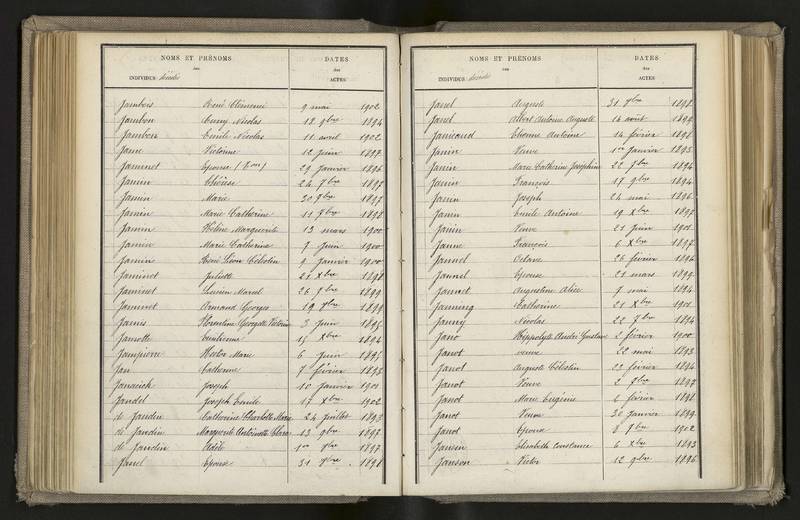 NOMS ET PRÉNOMS DATES
des des
INDIVIDUS décédés ACTES
Jambois René Clément 9 mai 1902
Jambon Cuny Nicolas 18 9bre 1894
Jambon Emile Nicolas 11 avril 1902
Jame Victorine 12 juin 1897
Jaminet Epouse 29 janvier 1896
Jamin Thérèse 24 7bre 1897
Jamin Marie 30 9bre 1897
Jamin Marie Catherine 11 7bre 1898
Jamin Hélène Marguerite 13 mars 1900
Jamin Marie Catherine 7 juin 1900
Jamin René Léon Célestin 9 janvier 1900
Jaminet Juliette 21 Xbre 1898
Jaminet Lucien Marcel 26 7bre 1899
Jaminet Armand Georges 19 9bre 1899
Jamis Florentine Georgette Victorine 3 juin 1895
Jamotte 15 Xbre 1894
Jampierre Hector Marie 6 juin 1895
Jan Catherine 7 février 1893
Janaick Joseph 10 janvier 1901
Jandel Joseph Emile 17 Xbre 1902
de Jandin Catherine Charlotte Marie 24 juillet 1893
de Jandin Marguerite Antoinette Clara 13 9bre 1897
de Jandin Adèle 1er 1897
Janel Epouse 31 1898
NOMS ET PRÉNOMS DATES
des des
INDIVIDUS décédés ACTES
Janel Auguste 31 1898
Janel Albert Antoine Auguste 16 août 1899
Janicaud Etienne Antoine 14 février 1898
Janin Veuve 1er janvier 1893
Janin Marie Catherine Joséphine 22 7bre 1894
Janin François 17 9bre 1894
Janin Joseph 24 mai 1896
Janin Emile Antoine 19 Xbre 1897
Janin Veuve 21 juin 1901
Janne François 6 Xbre 1897
Jannel Octave 26 février 1896
Jannel Epouse 21 mars 1899
Jannet Augustine Alice 7 mai 1894
Janning Catherine 21 Xbre 1901
Janny Nicolas 22 7bre 1894
Jano Hippolyte André Gustave 2 février 1900
Janot veuve 22 mai 1893
Janot Auguste Célestin 23 février 1894
Janot Veuve 2 1897
Janot Marie Eugénie 6 février 1898
Janot Veuve 30 janvier 1899
Janot Epouse 8 1902
Jansen Elisabeth Constance 6 Xbre 1893
Janson Victor 12 9bre 1896